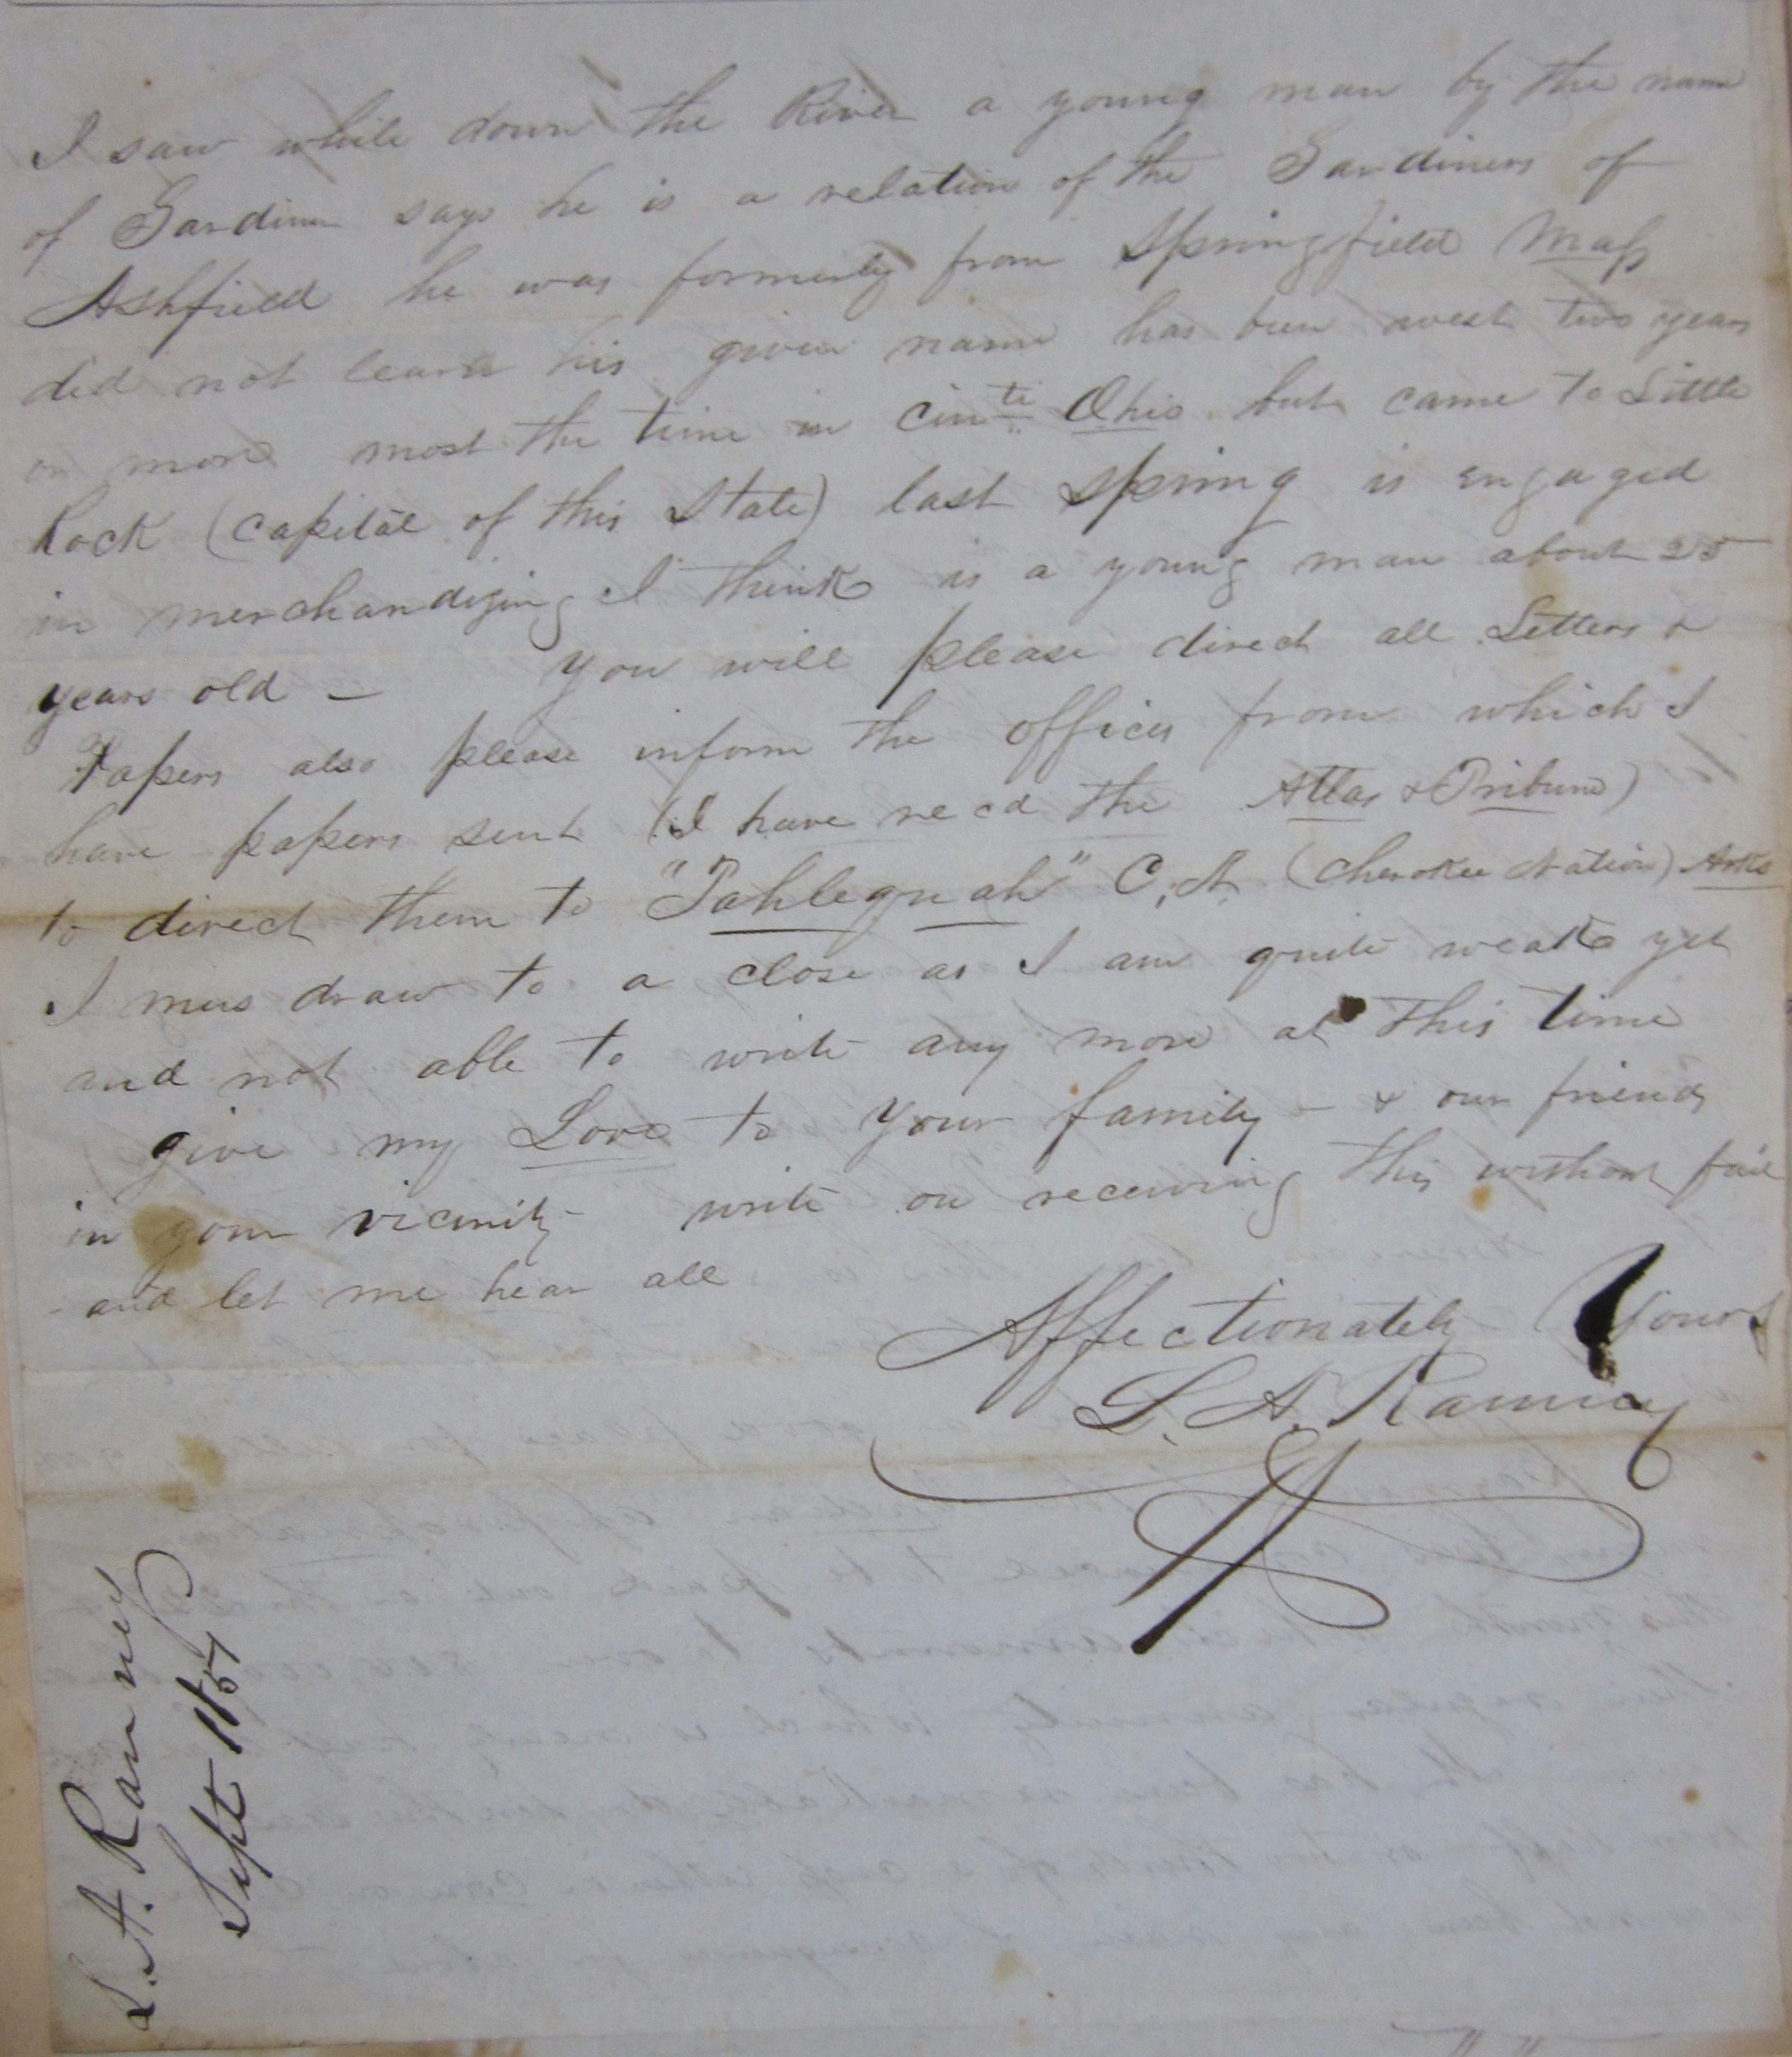 I saw while down the River a young man by the name
of Gardiner says he is a relation of the Gardiners of
Ashfield he was formerly from Springfield Mass
did not learn his given name has been west two years
or more most the time in Cinti Ohio but came to Little
Rock (capital of this State) last spring is engaged
in merchandizing I think is a young man about 25
years old — You will please direct all Letters &
Papers also please inform the offices from which I
have papers sent (I have recd the Atlas & Tribune)
to direct them to "Tahlequah" C. N. (Cherokee Nation) Arks
I mus draw to a close as I am quite weak yet
and not able to write any more at this time
give my Love to your family - & our friends
in your vicinity - write on receiving this without fail
and let me hear all
Affectionately Yours
L. A. Ranney
L. A. Ranney
Sept 1851